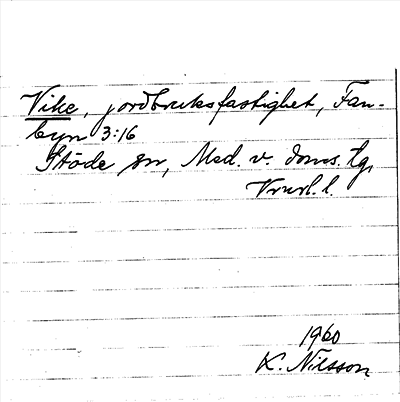 Vike, jordbruksfastighet, Fan-
byn 3:16
Stöde sn, Med. v. doms. tg,
Vrnl. l.
1960
K. Nilsson